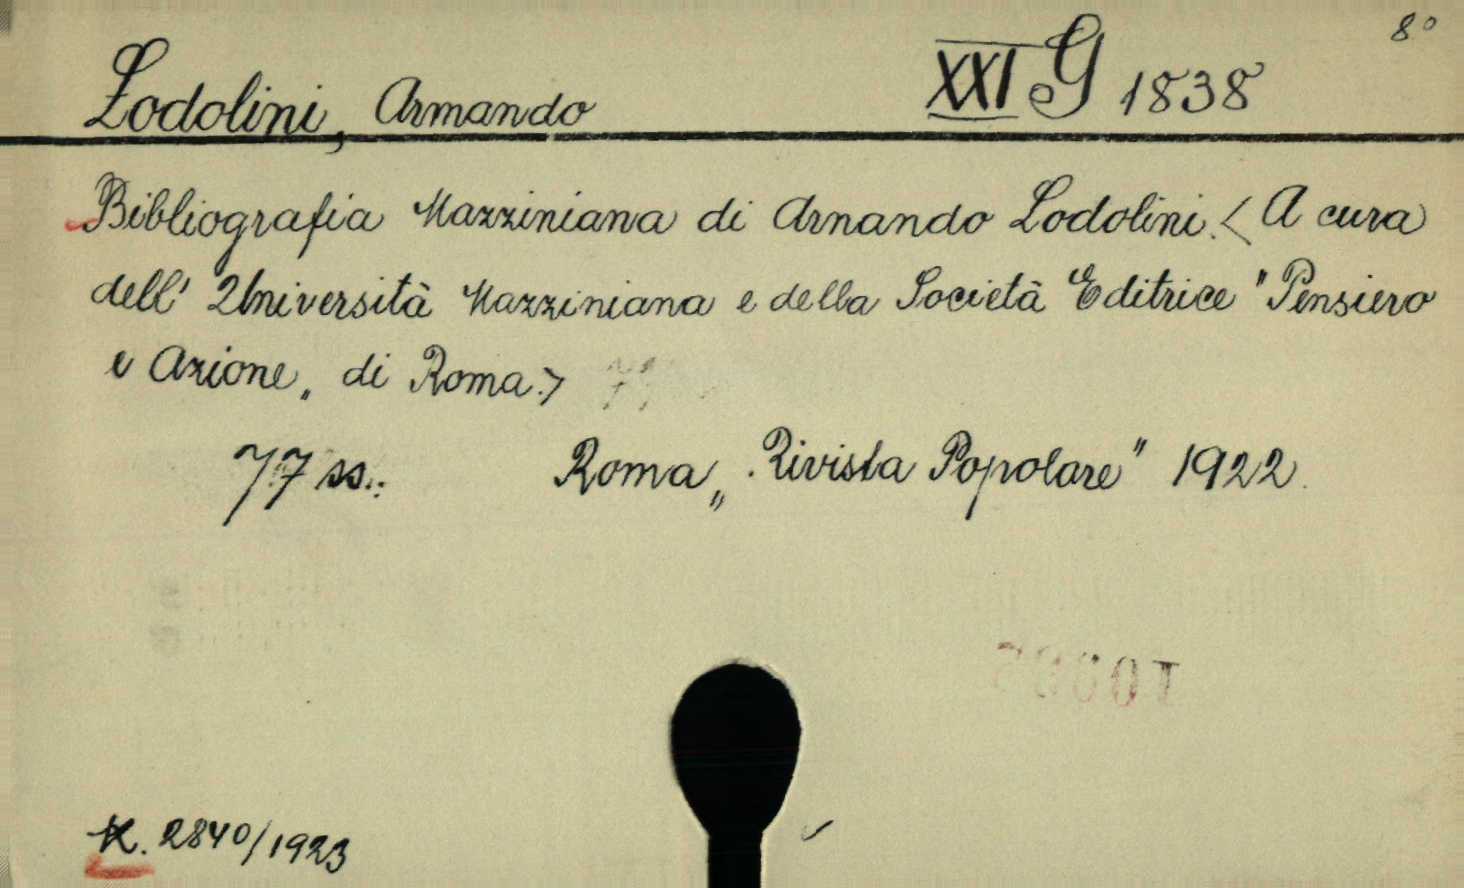 8°
Lodolini, Armando XXI G 1838
Bibliografia Mazziniana di Arnando Lodolini. <A cura
dell' Università Mazziniana e della Società Editrice "Pensiero
e Azione„ di Roma.>
77 ss.: Roma „Rivista Popolare" 1922.
K. 2840/1923